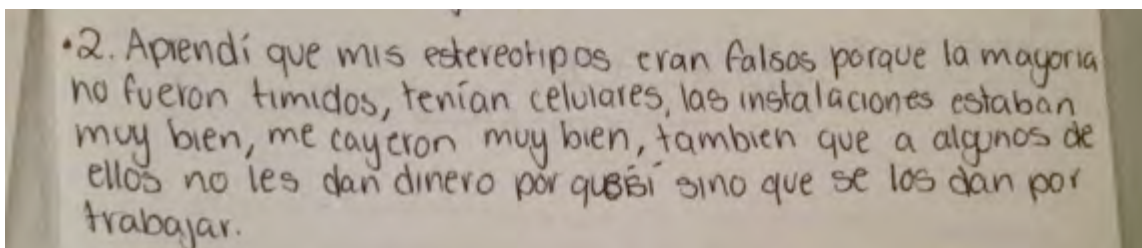 •2. Aprendí que mis estereotipos eran falsos porque la mayoria
no fueron timidos, tenían celulares, las instalaciones estaban
muy bien, me cayeron muy bien, tambien que a algunos de
ellos no les dan dinero por sino que se los dan por
trabajar.